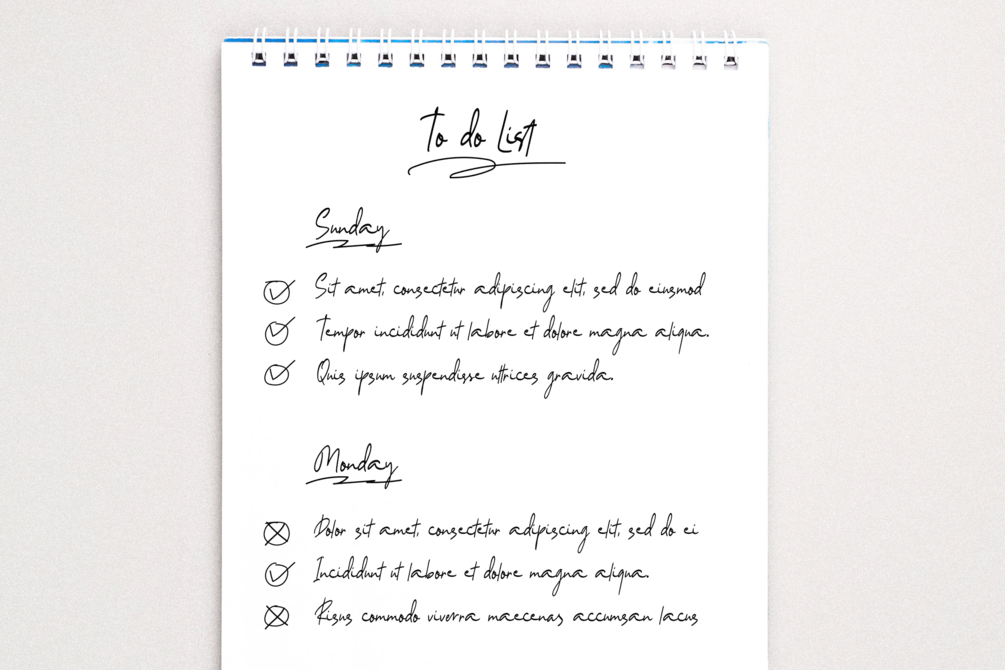 To do List
Sunday
Sit amet, consectetur adipiscing elit, sed do eiusmod
Tempor incididunt ut labore et dolore magna aliqua.
Quis ipsum suspendisse ultrices gravida.
Monday
Dolor sit amet, consectetur adipiscing elit, sed do ei
Incididunt ut labore et dolore magna aliqua.
Risus commodo viverra maecenas accumsan lacus